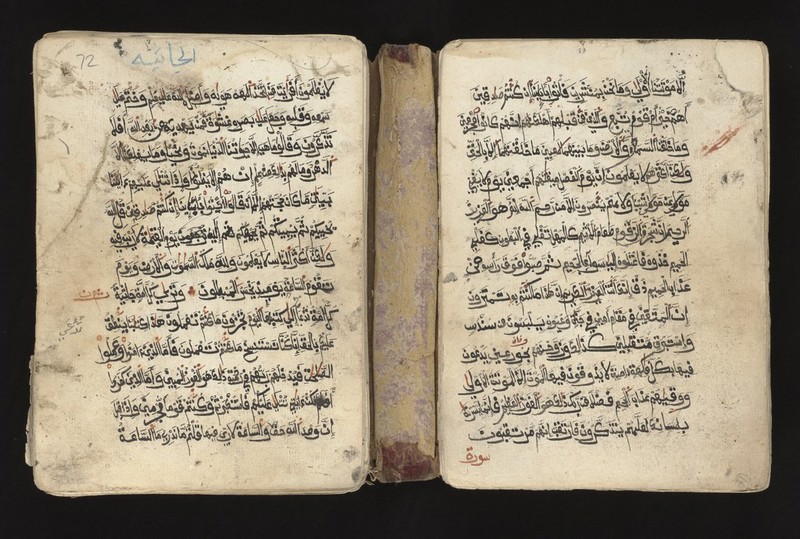 إلا موتتنا الأولى وما نحن بمنشرين فأتوا بآبائنا إن كنتم صدقين
أهم خير أم قوم تبع والذين من قبلهم أهلكنهم إنهم كانوا مجرمين
وما خلقنا السموت والأرض وما بينهما لعبين ما خلقنهما إلا بالحق
ولكن أكثرهم لا يعلمون إن يوم الفصل ميقتهم أجمعين يوم لا يغني
مولى عن مولى شيئا ولا هم ينصرون إلا من رحم الله إنه هو العزيز
الرحيم إن شجرت الزقوم طعام الأثيم كالمهل تغلي في البطون كغلي
الحميم خذوه فاعتلوه إلى سواء الجحيم ثم صبوا فوق رأسه من
عذاب الحميم ذق إنك أنت العزيز الكريم إن هذا ما كنتم به تمترون
إن المتقين في مقام أمين في جنت وعيون يلبسون من سندس
وإستبرق متقبلين كذلك وزوجنهم بحور عين يدعون
فيها بكل فكهة آمنين لا يذوقون فيها الموت إلا الموتة الأولى
ووقيهم عذاب الجحيم فضلا من ربك ذلك هو الفوز العظيم فإنما يسرنه
بلسانك لعلهم يتذكرون فارتقب إنهم مرتقبون
سورة
72
الجاثية
لا يعلمون أفرأيت من اتخذ إلهه هويه وأضله الله على علم وختم على
سمعه وقلبه وجعل على بصره غشوة فمن يهديه من بعد الله أفلا
تذكرون وقالوا ما هي إلا حياتنا الدنيا نموت ونحيا وما يهلكنا إلا
الدهر وما لهم بذلك من علم إن هم إلا يظنون وإذا تتلى عليهم آيتنا
بينت ما كان حجتهم إلا أن قالوا ائتوا بآبائنا إن كنتم صدقين قل الله
يحييكم ثم يميتكم ثم يجمعكم إلى يوم القيمة لا ريب فيه
ولكن أكثر الناس لا يعلمون ولله ملك السموت والأرض ويوم
تقوم الساعة يومئذ يخسر المبطلون وترى كل أمة جاثية
كل أمة تدعى إلى كتبها اليوم تجزون ما كنتم تعملون هذا كتبنا ينطق
عليكم بالحق إنا كنا نستنسخ ما كنتم تعملون فأما الذين آمنوا وعملوا
الصلحت فيدخلهم ربهم في رحمته ذلك هو الفوز المبين وأما الذين كفروا
أفلم تكن آيتي تتلى عليكم فاستكبرتم وكنتم قوما مجرمين وإذا قيل
إن وعد الله حق والساعة لا ريب فيها قلتم ما ندري ما الساعة